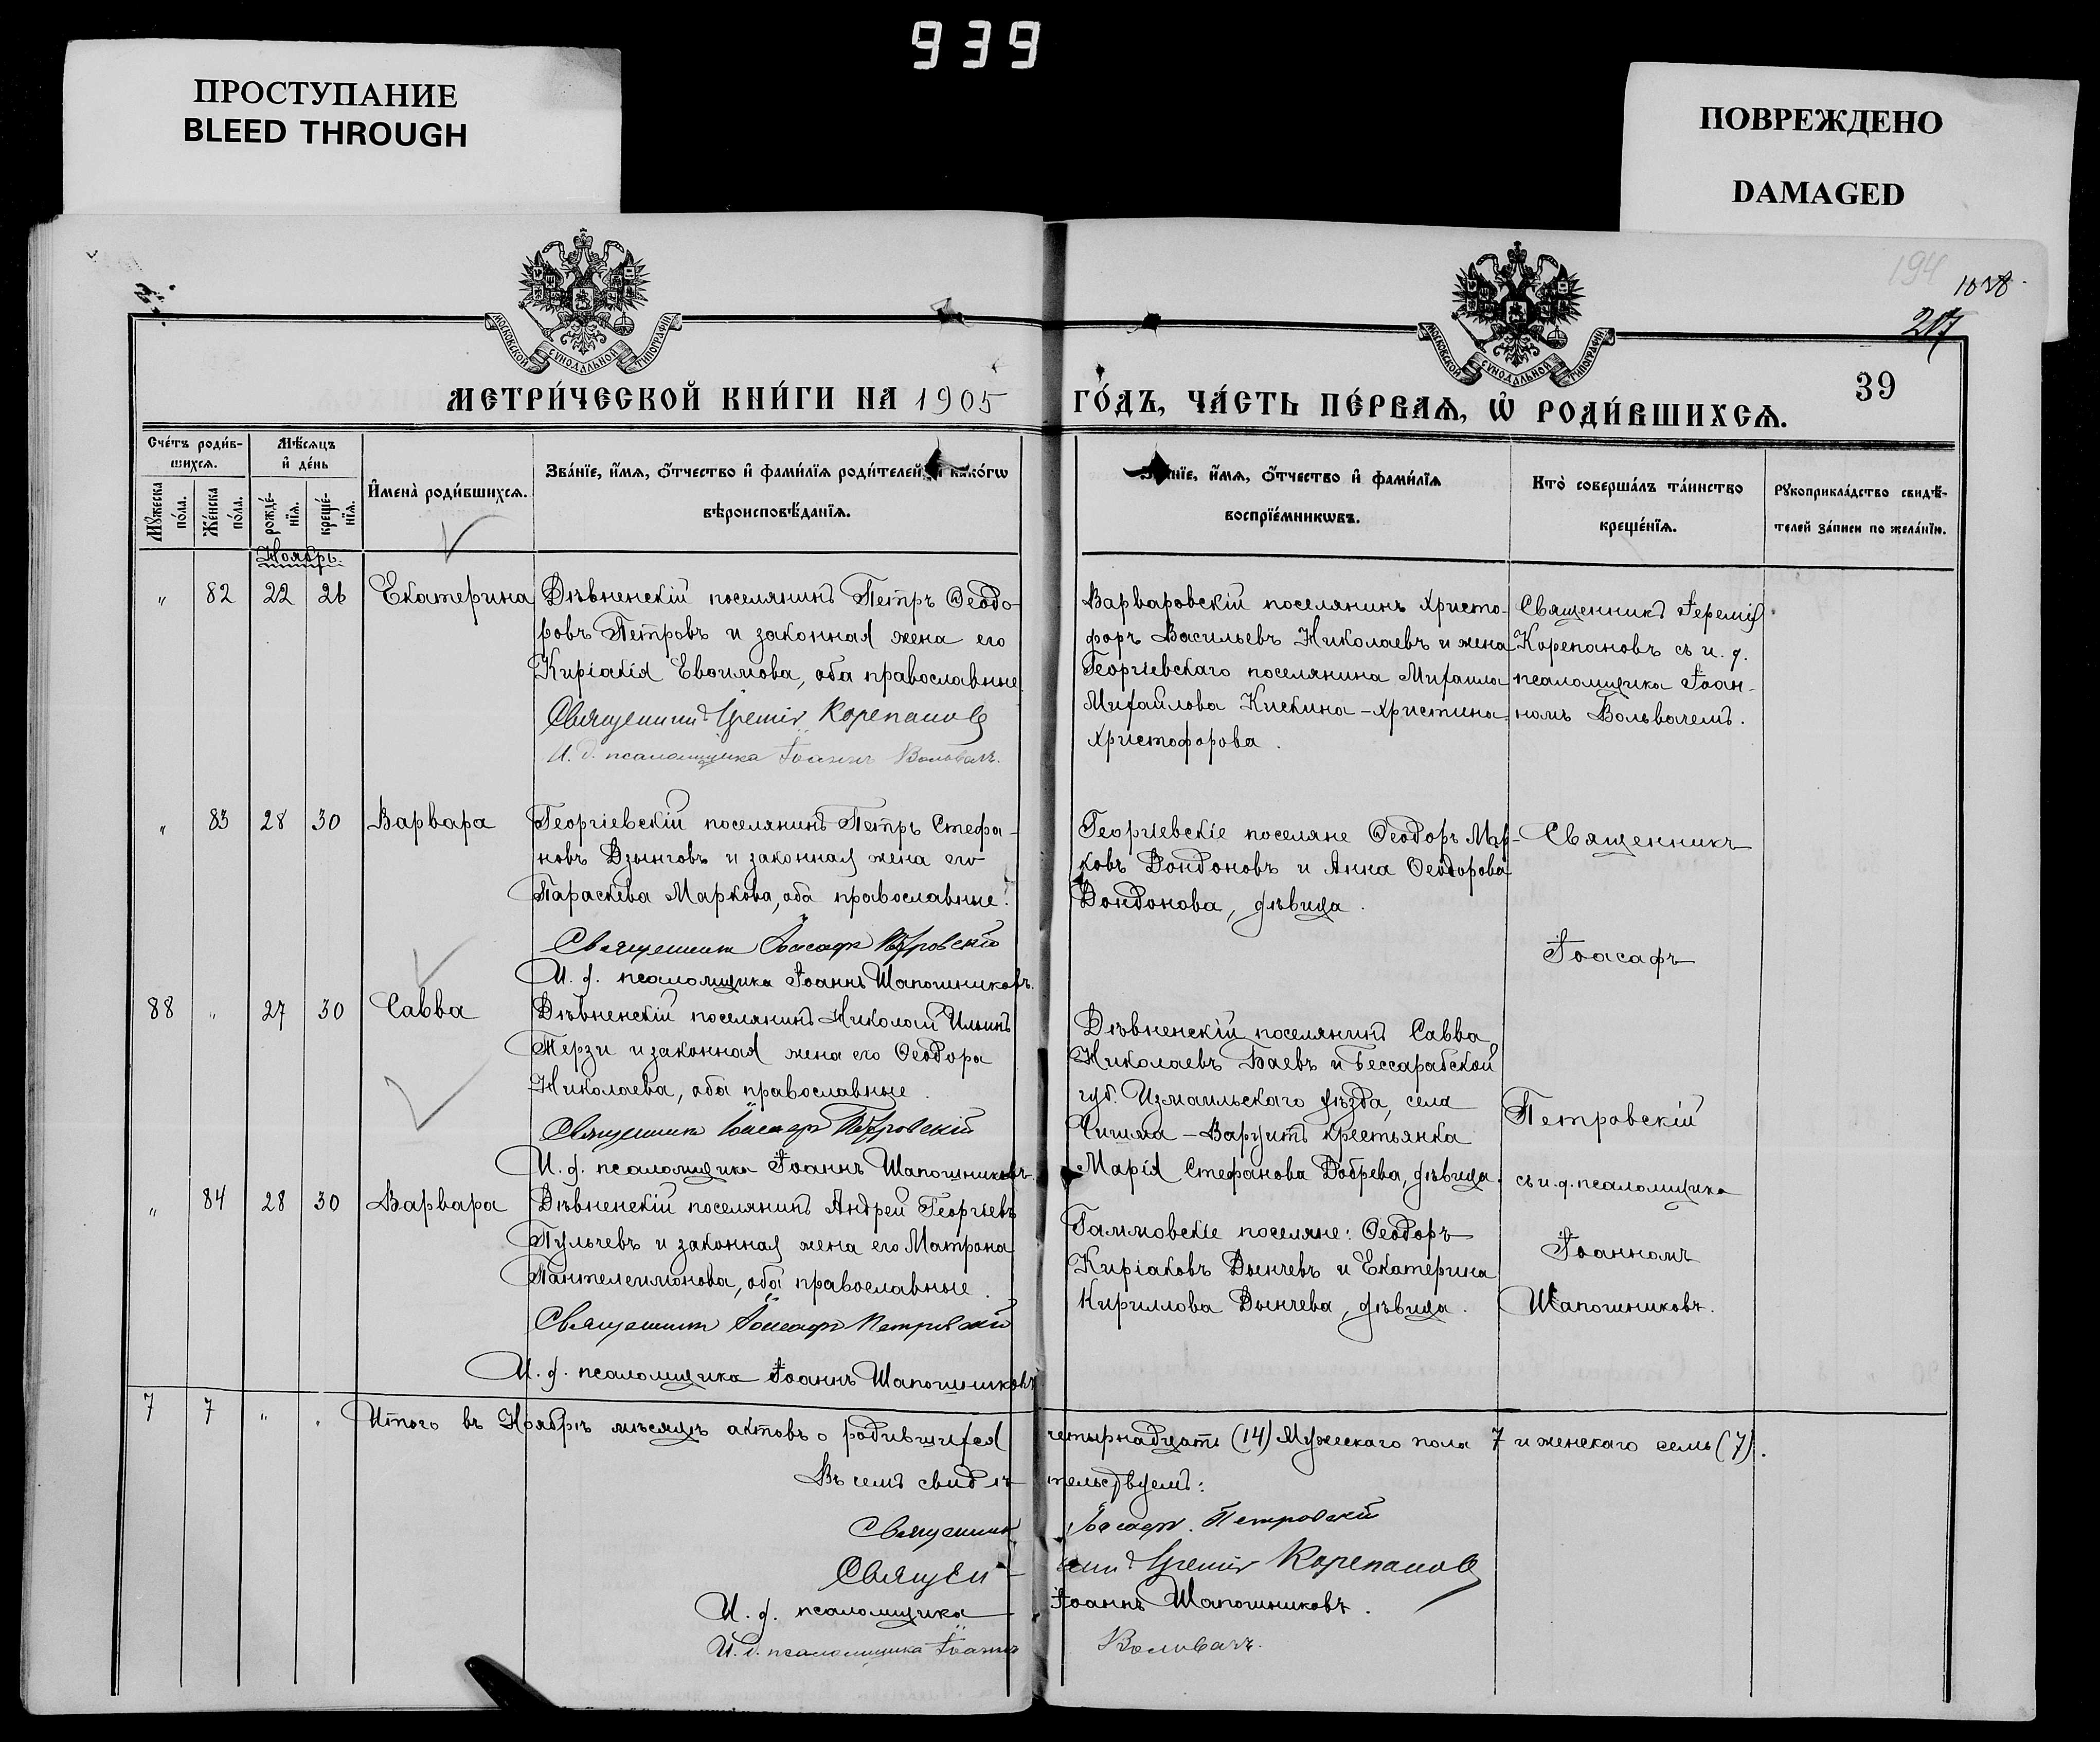 939
ПРОСТУПАНИЕ
BLEED THROUGH
ПОВРЕЖДЕНО
DAMAGED
194
1038
217
39
МОСКОВСКОЙ СѴНОДАЛЬНОЙ ТИПОГРАФІИ
МОСКОВСКОЙ СѴНОДАЛЬНОЙ ТИПОГРАФІИ
МЕТРИ́ЧЕСКОЙ КНИ́ГИ НА 1905 ГО́ДЪ, ЧА́СТЬ ПЕ́РВАѦ, Ѡ҆ РОДИ́ВШИХСѦ.
Сче́тъ роди́в-
шихсѧ.
Мѣ́сѧцъ
и҆ де́нь
Мꙋжеска по́ла.
Же́нска по́ла.
рожде́-
нїѧ.
креще́-
нїѧ.
И҆мена̀ роди́вшихсѧ.
Зва́нїе, и҆́мѧ, ѻ҆́тчество и҆ фами́лїѧ роди́телей, и҆ како́гѡ
вѣроисповѣ́данїѧ.
Зва́нїе, и҆́мѧ, ѻ҆́тчество и҆ фами́лїѧ
воспрїе́мникѡвъ.
Кто̀ соверша́лъ та́инство
креще́нїѧ.
Рꙋкоприкла́дство свидѣ́-
телей за́писи по жела́нїю.
Ноябрь.
" 82 22 26 Екатерина
Дѣвненскій поселянинъ Петръ Ѳеодо-
ровъ Петровъ и законная жена его
Киріакія Евѳимова, оба православные
Священникъ Іеремія Корепановъ
И. д. псаломщика Іоаннъ Вольвачъ.
Варваровскій поселянинъ Христо-
форъ Васильевъ Николаевъ и жена
Георгіевскаго поселянина Михаила
Михайлова Кискина - Христина
Христофорова.
Священникъ Іеремія
Корепановъ съ и. д.
псаломщика Іоан-
номъ Вольвачемъ.
" 83 28 30 Варвара
Георгіевскій поселянинъ Петръ Стефа-
новъ Дзынговъ и законная жена его
Параскева Маркова, оба православные.
Священникъ Іоасафъ Петровскій
И. д. псаломщика Іоаннъ Шапошниковъ.
Георгіевскіе поселяне Ѳеодоръ Мар-
ковъ Дондоновъ и Анна Ѳеодорова
Дондонова, дѣвица.
Священникъ
Іоасафъ
Петровскій
съ и. д. псаломщика
Іоанномъ
Шапошниковъ.
88 " 27 30 Савва
Дѣвненскій поселянинъ Николай Ильинъ
Терзи и законная жена его Ѳеодора
Николаева, оба православные.
Священникъ Іоасафъ Петровскій
И. д. псаломщика Іоаннъ Шапошниковъ.
Дѣвненскій поселянинъ Савва
Николаевъ Баевъ и Бессарабской
губ. Измаильскаго уѣзда, села
Чишма - Варуитъ крестьянка
Марія Стефанова Добрева, дѣвица.
" 84 28 30 Варвара
Дѣвненскій поселянинъ Андрей Георгіевъ
Пульчевъ и законная жена его Матрона
Пантелеимонова, оба православные.
Священникъ Іоасафъ Петровскій
И. д. псаломщика Іоаннъ Шапошниковъ
Гаммовскіе поселяне: Ѳеодоръ
Киріаковъ Дынчевъ и Екатерина
Кириллова Дынчева, дѣвица.
7 7 " " Итого въ Ноябрѣ мѣсяцѣ актовъ о родившихся четырнадцать (14) Мужескаго пола 7 и женскаго семь (7).
Въ семъ свидѣтельствуемъ:
Священникъ Іоасафъ Петровскій
Священникъ Іеремія Корепановъ
И. д. псаломщика Іоаннъ Шапошниковъ.
И. д. псаломщика Іоаннъ Вольвачъ.